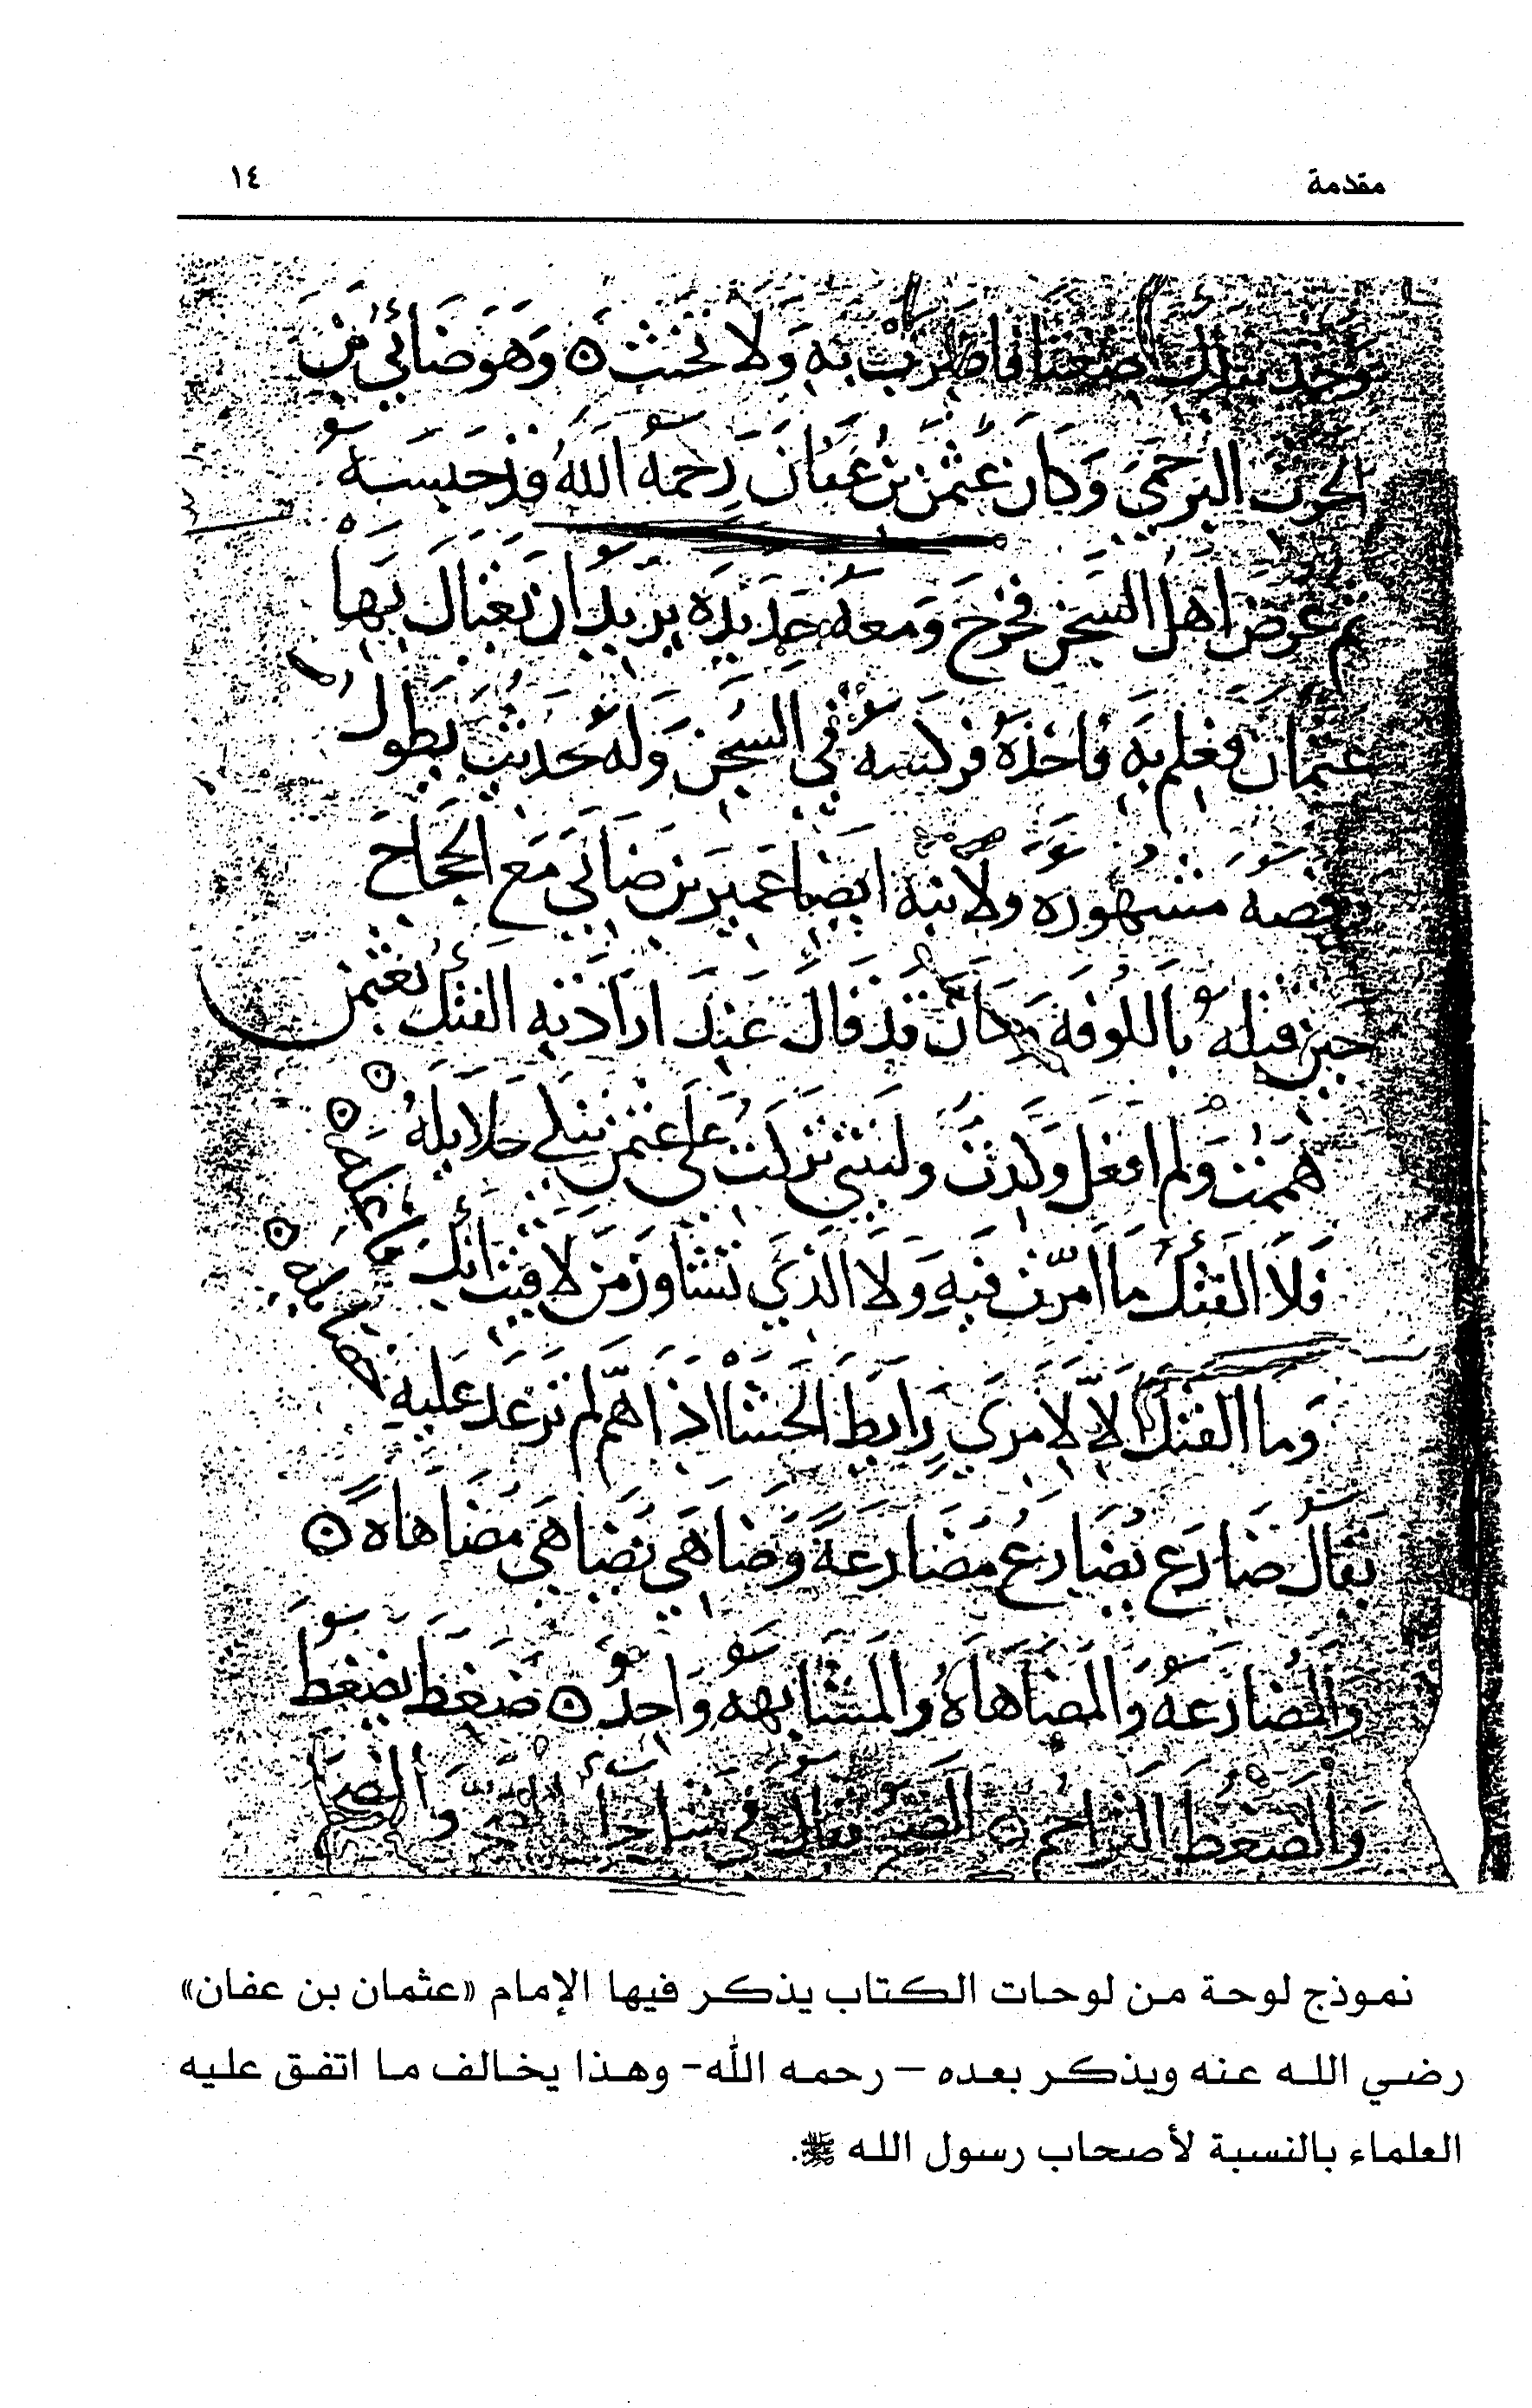 مقدمة ١٤
فاضرب به ولا تحنث ۞ وهو ضابئ بن
الحرث البرجمي وكان عثمن بن عفان رحمه الله قد حبسه
ثم عرض اهل السجن فخرج ومعه حديدة يريد ان يغتال بها
عثمان فعلم به فاخذه فركسه في السجن وله حديث يطول
وقصه مشهوره ولابنه ايضا عمير بن ضابي مع الحجاج
حين قتله بالكوفة وكان قد قال عند ارادته الفتك بعثمن
هممت ولم افعل وكدت وليتني تركت على عثمن تبكي حلايله
فلا الفتك ما امرت فيه ولا الذي تشاور من لاقيت انك فاعله
وما الفتك الا لامرئ رابط الحشا اذا هم لم ترعد عليه
يقال ضارع يضارع مضارعة وضاهي يضاهي مضاهاه ۞
والمضارعه والمضاهاه والمشابهه واحد ۞ ضغط يضغط
والضغط التزاحم ۞
نموذج لوحة من لوحات الكتاب يذكر فيها الإمام «عثمان بن عفان»
رضي الله عنه ويذكر بعده – رحمه الله- وهذا يخالف ما اتفق عليه
العلماء بالنسبة لأصحاب رسول الله ﷺ.